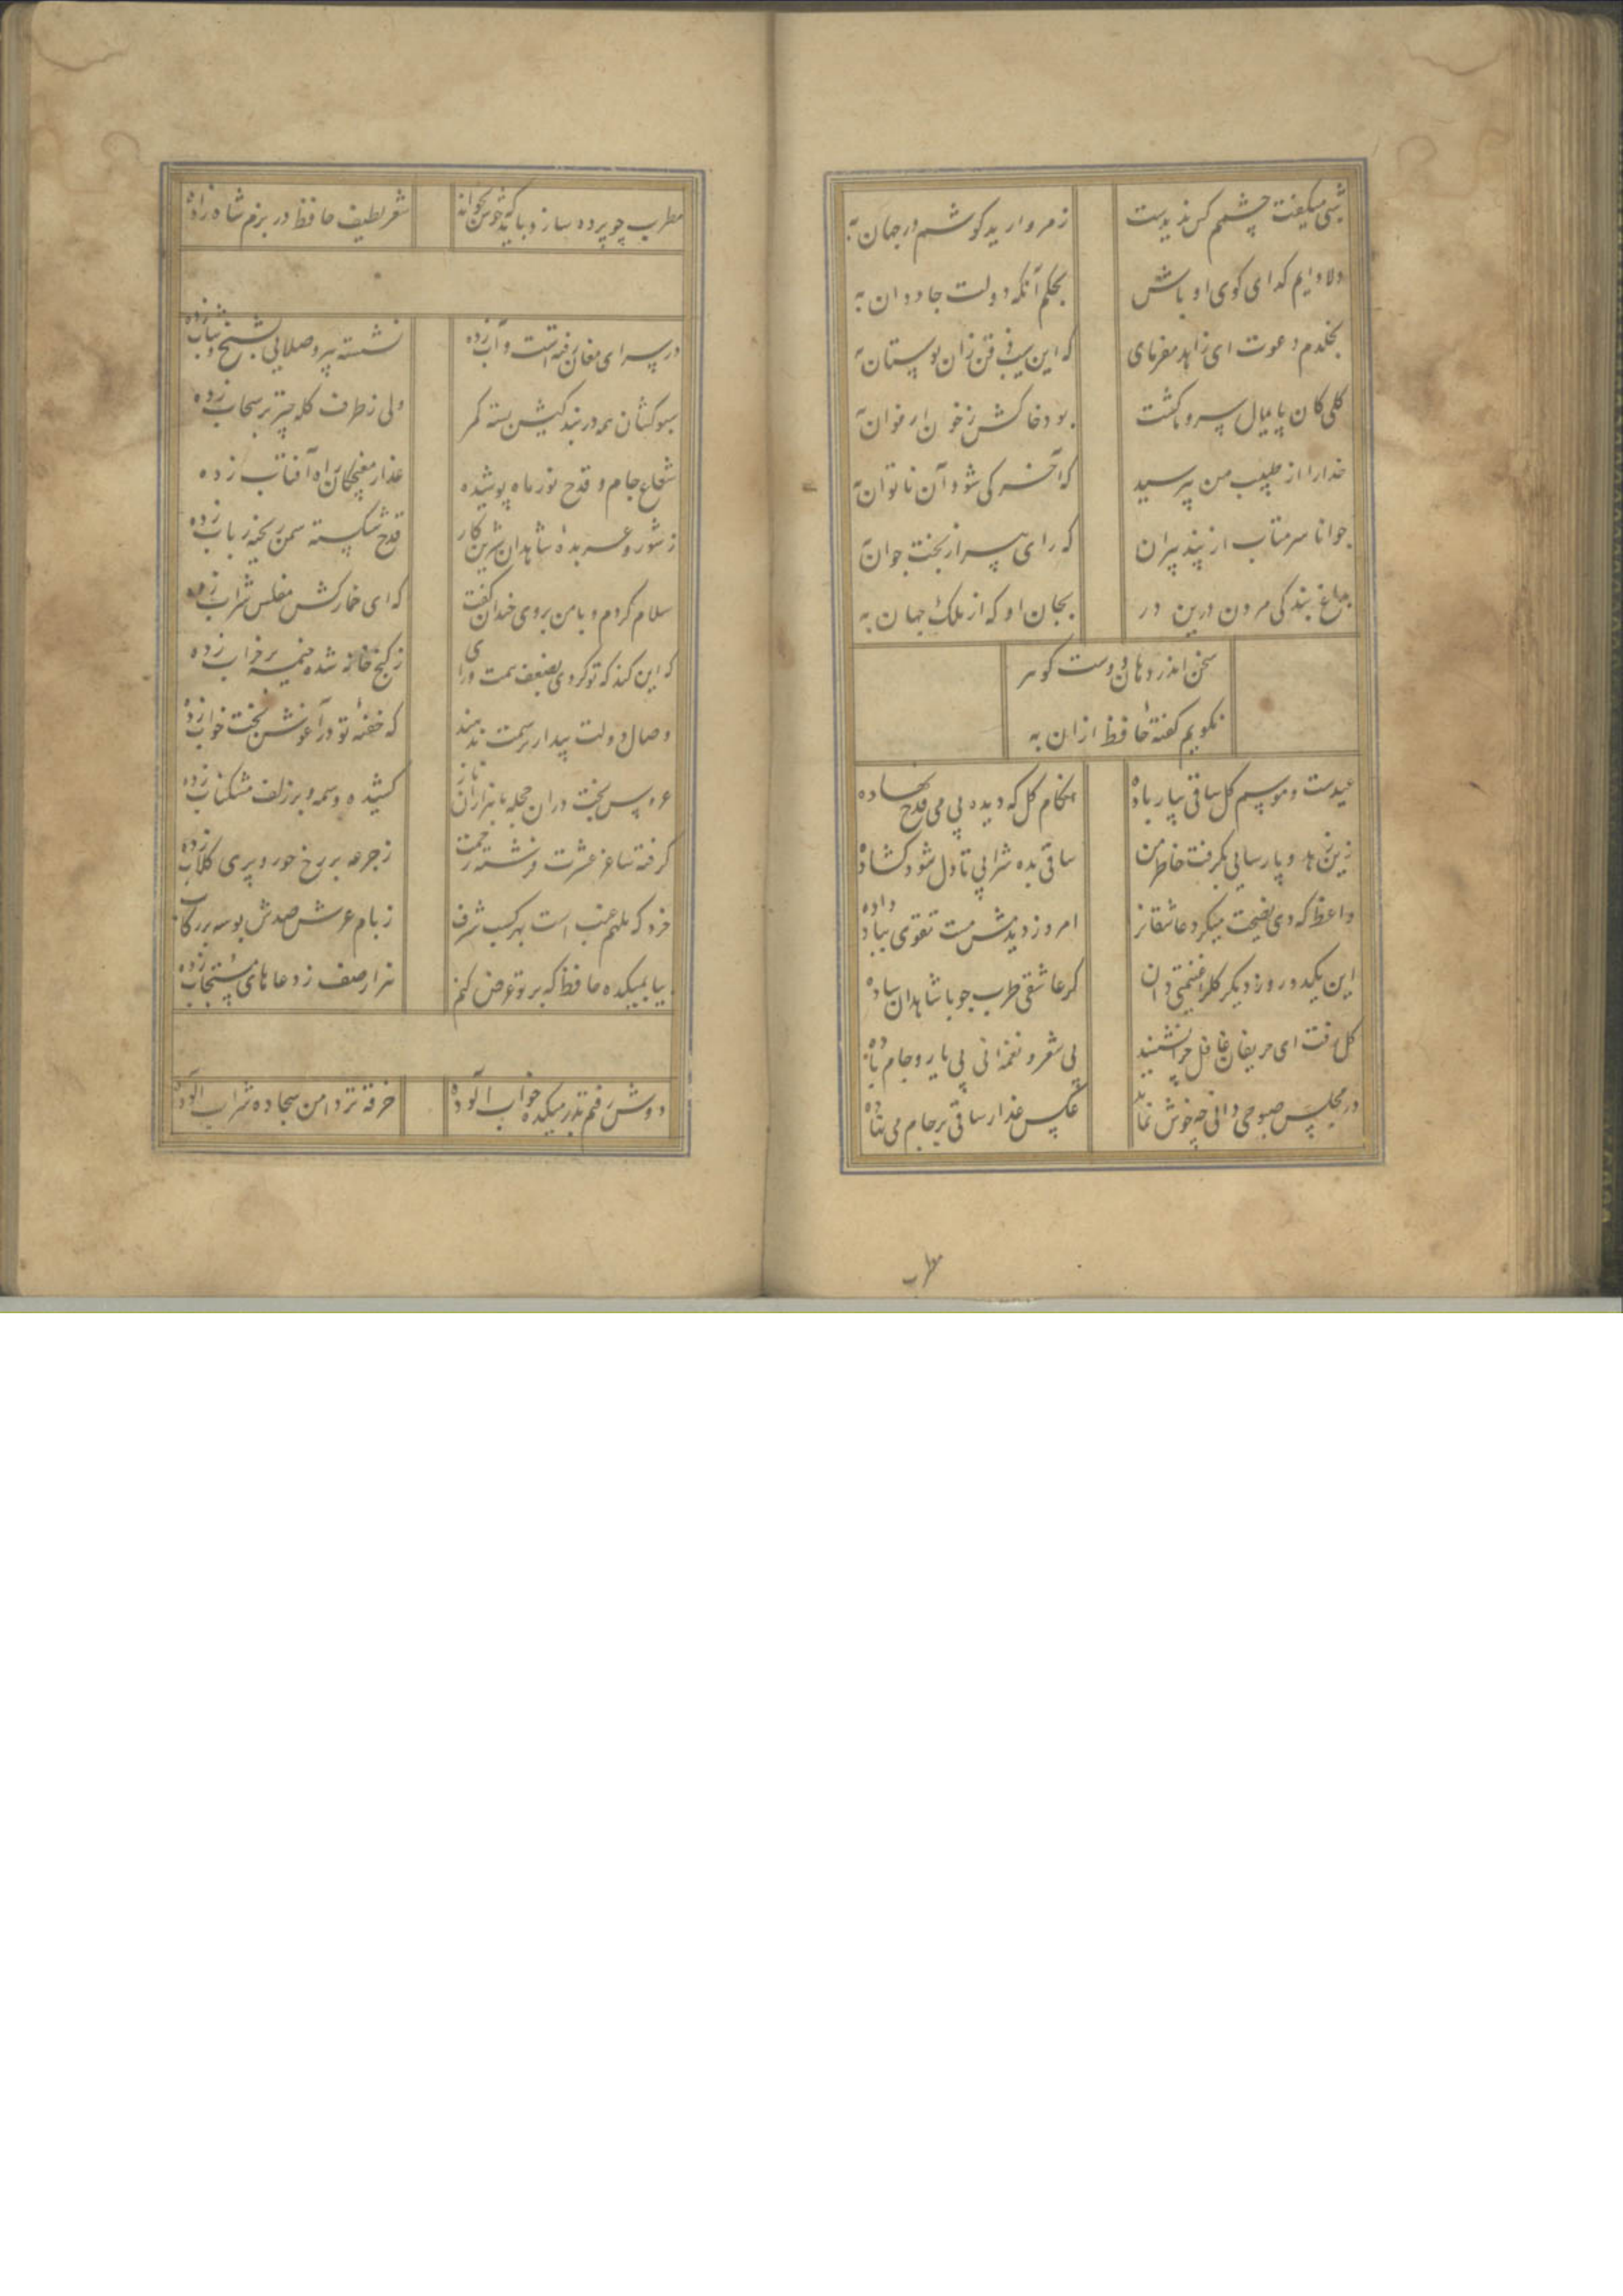 شبی میگفت چشم کس ندیدست
ز مروارید کوشم در جهان به
دلا دایم کدای کوی او باش
بحکم آنکه دولت جاودان به
بخلدم دعوت ای زاهد مفرمای
که این سیب ذقن زان بوستان به
کلی کان پایمال سرو ما کشت
بود خاکش ز خون ارغوان به
خدارا از طبیب من بپرسید
که آخر کی شود آن ناتوان به
جوانا سر متاب از پند پیران
که رای پیر از بخت جوان به
بداغ بندکی مردن درین در
بجان او که از ملک جهان به
سخن اندر دهان دوست کوهر
نکویم کفتهٔ حافظ ازان به
عیدست و موسم کل ساقی بیار باده
هنکام کل که دیده بی می قدح نهاده
زین زهد و پارسایی بکرفت خاطر من
ساقی بده شرابی تا دل شود کشاده
واعظ که دی نصیحت میکرد عاشقانرا
امروز دیدمش مست تقوی بباد داده
این یکدو روز دیکر کلرا غنیمتی دان
کر عاشقی طرب جو با شاهدان ساده
کل رفت ای حریفان غافل چرا نشینید
بی شعر و نغمه بی یار و جام باده
در مجلس صبوحی دانی چه خوش نماید
عکس عذار ساقی بر جام می فتاده
مطرب
مطرب چو پرده سازد باید که خوش بخواند
شعر لطیف حافظ در بزم شاه زاده
در سرای مغان رفته است و آب زده
نشسته پیر و صلایی بشیخ و شاب زده
سبوکشان همه در بندکیش بسته کمر
ولی ز طرف کله چتر بر سحاب زده
شعاع جام و قدح نور ماه پوشیده
عذار مغبچکان راه آفتاب زده
ز شور و عربدهٔ شاهدان شیرین کار
قدح شکسته سمن ریخته رباب زده
سلام کردم و با من بروی خندان کفت
که ای خمارکش مفلس شراب زده
که این کند که تو کردی بضعف همت و رای
ز کنج خانه شده خیمه بر خراب زده
وصال دولت بیدار ترسمت ندهند
که خفتهٔ تو در آغوش بخت خواب زده
عروس بخت دران حجله با هزاران ناز
کشیده وسمه و بر زلف مشکناب زده
کرفته ساغر عشرت فرشته رحمت
ز جرعه بر رخ حور و پری کلاب زده
خرد که ملهم غیب است بهر کسب شرف
ز بام عرش صدش بوسه بر رکاب
بیا بمیکده حافظ که بر تو عرض کنم
هزار صف ز دعاهای مستجاب زده
دوش رفتم بدر میکده خواب آلوده
خرقه تر دامن سجاده شراب آلوده